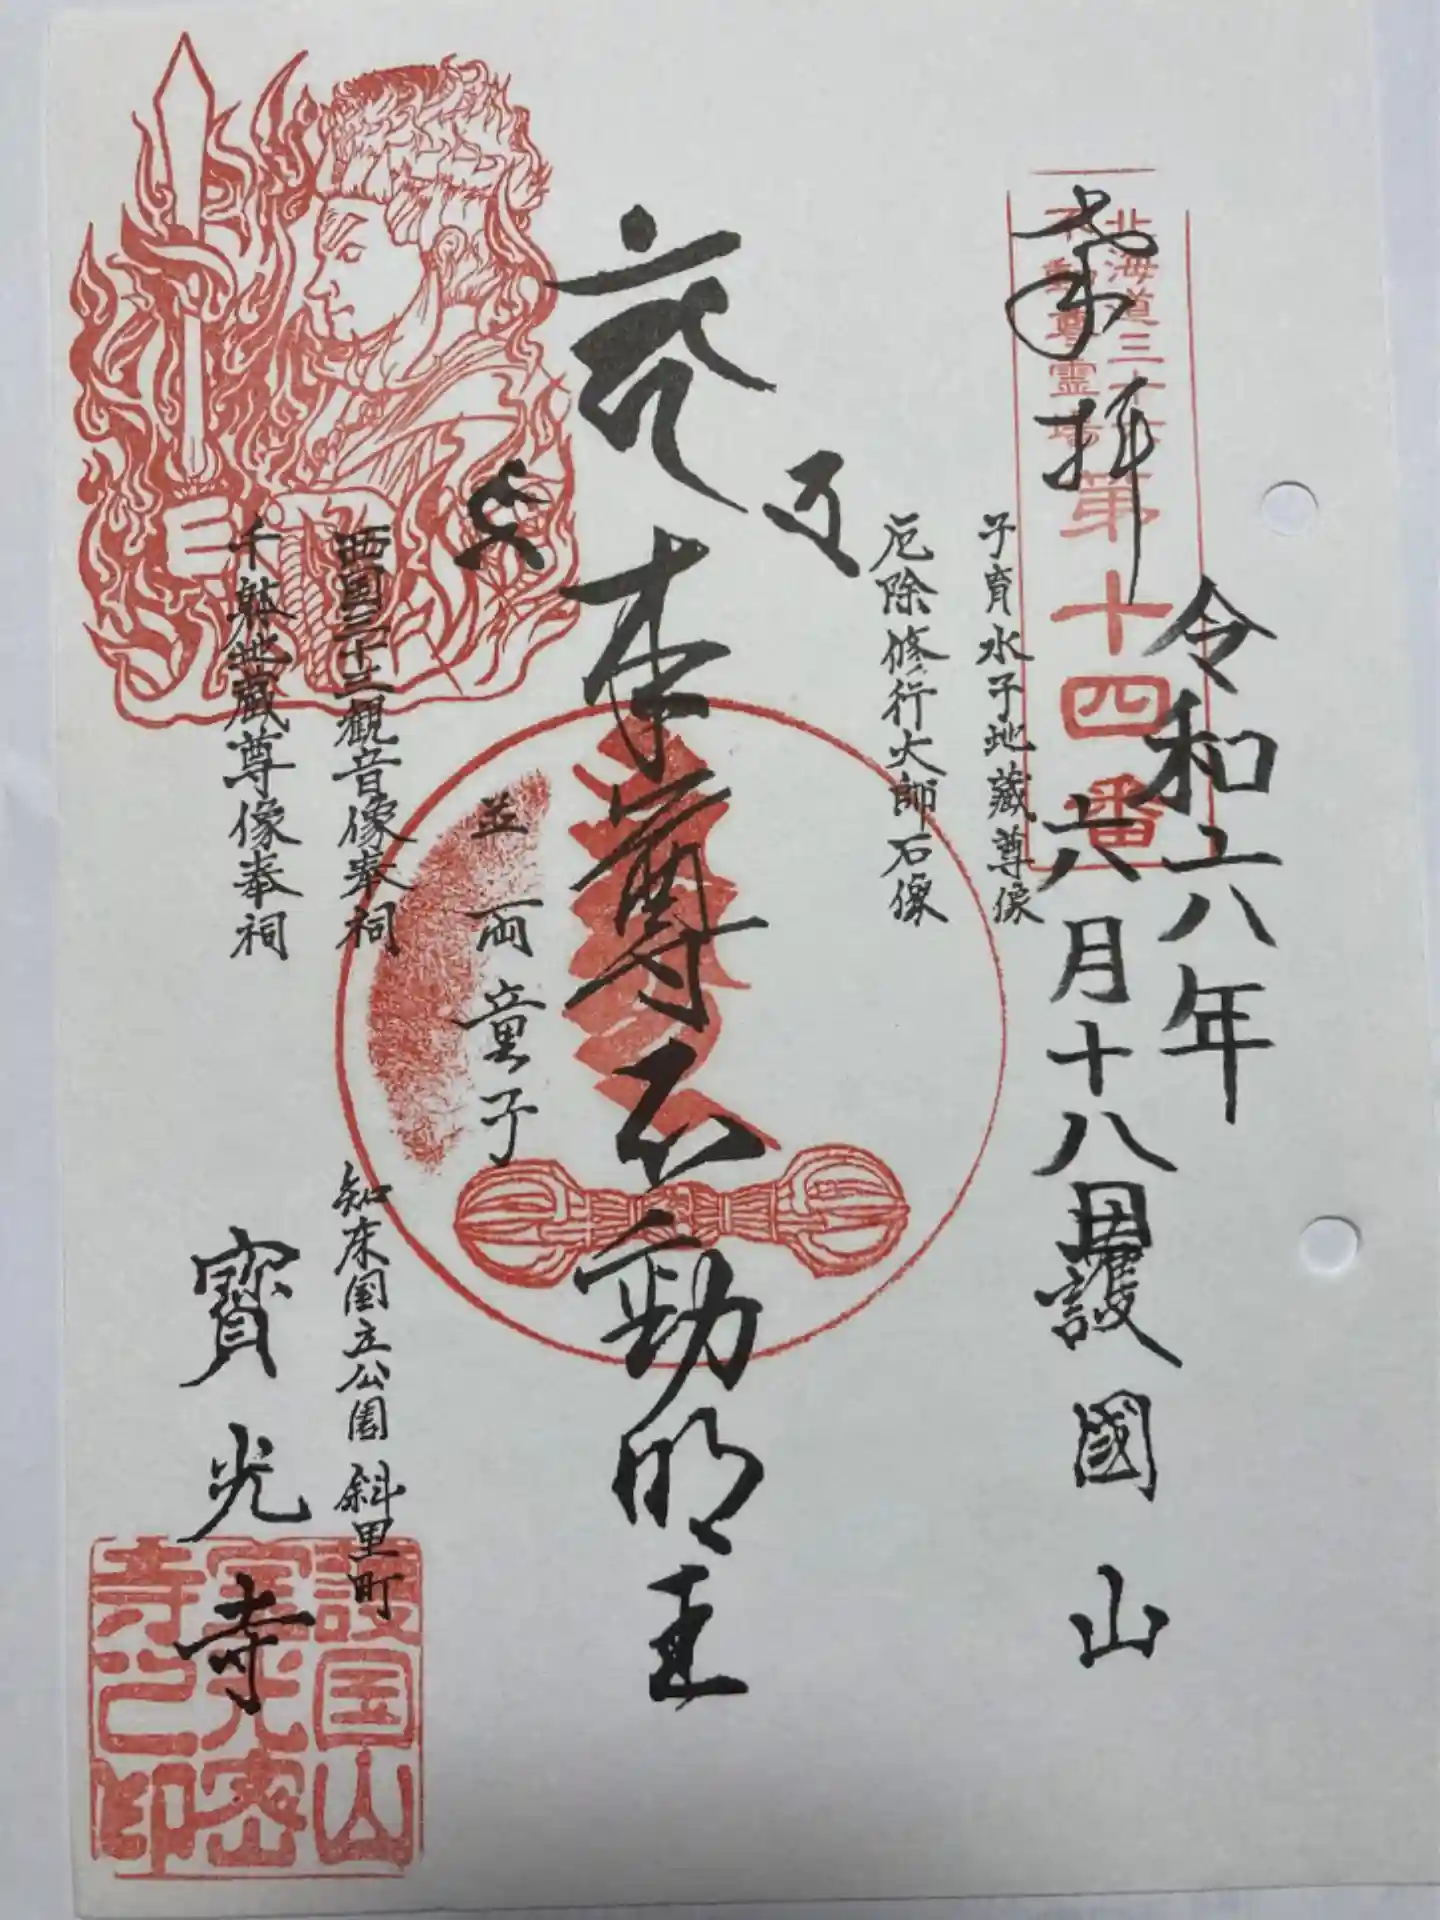 令和六年
六月十八日
奉拝
護國山
北海道三十六
不動尊霊場
第十四番
子育水子地藏尊像
厄除修行大師石像
本尊不動明王
並両童子
西国三十三観音像奉祠
千躰地蔵尊像奉祠
知床国立公園 斜里町
寳光寺
護国山
宝光密
寺之印